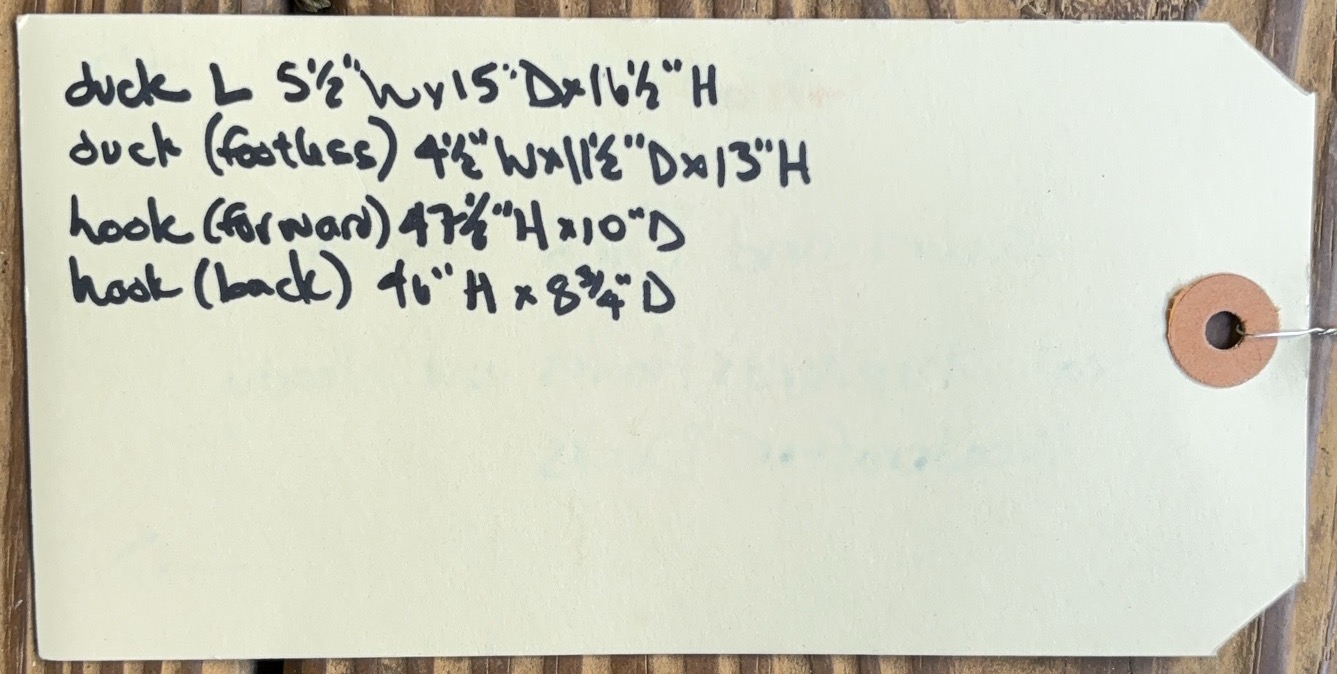 duck L 5½" W x 15" D x 16½" H
duck (footless) 4½" W x 11½" D x 13" H
hook (forward) 47½" H x 10" D
hook (back) 46" H x 8¾" D